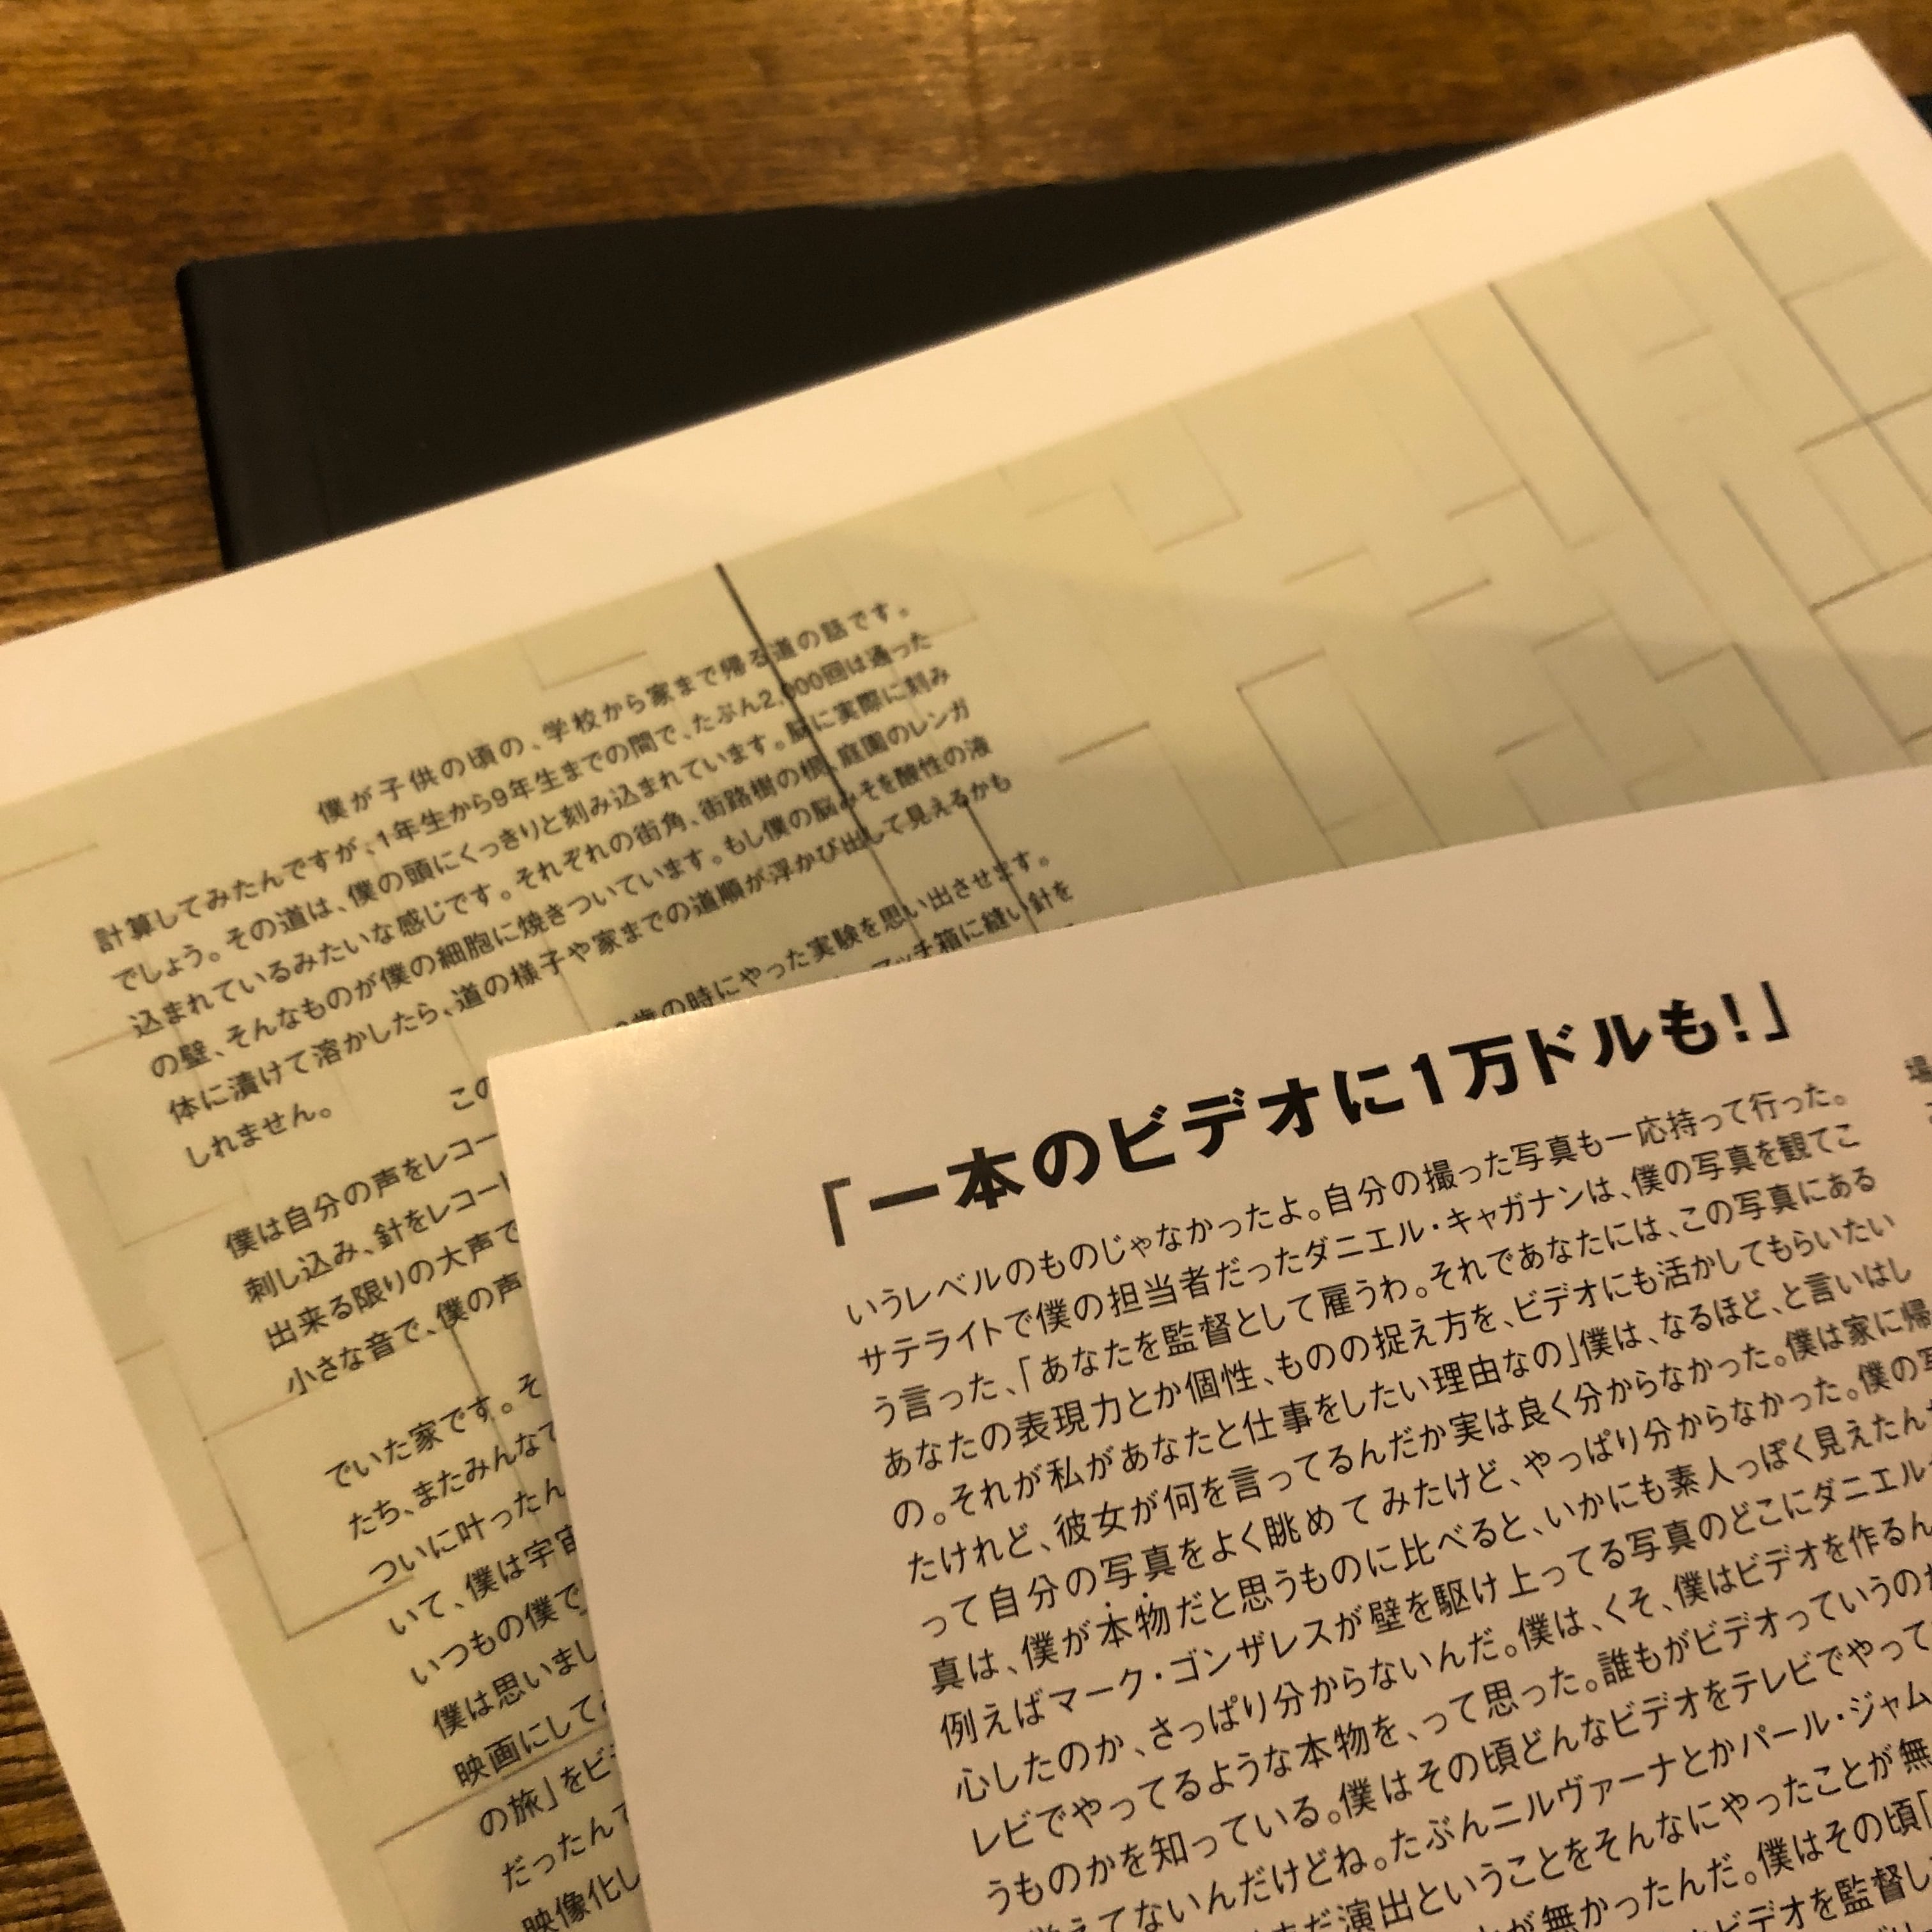 僕が子供の頃の、学校から家まで帰る道の話です。
計算してみたんですが、1年生から9年生までの間で、たぶん2,000回は通った
でしょう。その道は、僕の頭にくっきりと刻み込まれています。脳に実際に刻み
込まれているみたいな感じです。それぞれの街角、街路樹の棚、庭園のレンガ
の壁、そんなものが僕の細胞に焼きついています。もし僕の脳みそを酸性の液
体に漬けて溶かしたら、道の様子や家までの道順が浮かび出して見えるかも
しれません。
この
歳の時にやった実験を思い出させます。
僕は自分の声をレコー
マッチ箱に縫い針を
刺し込み、針をレコー
出来る限りの大声で
小さな音で、僕の声
でいた家です。そ
たち、またみんなで
ついに叶ったん
いて、僕は宇宙
いつもの僕で
僕は思いまし
映画にして
の旅」をビ
だったんで
映像化し
「一本のビデオに1万ドルも!」
いうレベルのものじゃなかったよ。自分の撮った写真も一応持って行った。
サテライトで僕の担当者だったダニエル・キャガナンは、僕の写真を観てこ
う言った、「あなたを監督として雇うわ。それであなたには、この写真にある
あなたの表現力とか個性、ものの捉え方を、ビデオにも活かしてもらいたい
の。それが私があなたと仕事をしたい理由なの」僕は、なるほど、と言いはし
たけれど、彼女が何を言ってるんだか実は良く分からなかった。僕は家に帰
って自分の写真をよく眺めてみたけど、やっぱり分からなかった。僕の写
真は、僕が本物だと思うものに比べると、いかにも素人っぽく見えたん
例えばマーク・ゴンザレスが壁を駆け上ってる写真のどこにダニエル
心したのか、さっぱり分からないんだ。僕は、くそ、僕はビデオを作るん
レビでやってるような本物を、って思った。誰もがビデオっていうのが
うものかを知っている。僕はその頃どんなビデオをテレビでやって
えてないんだけどね。たぶんニルヴァーナとかパール・ジャム
だ演出ということをそんなにやったことが無
が無かったんだ。僕はその頃「
ビデオを監督し
場